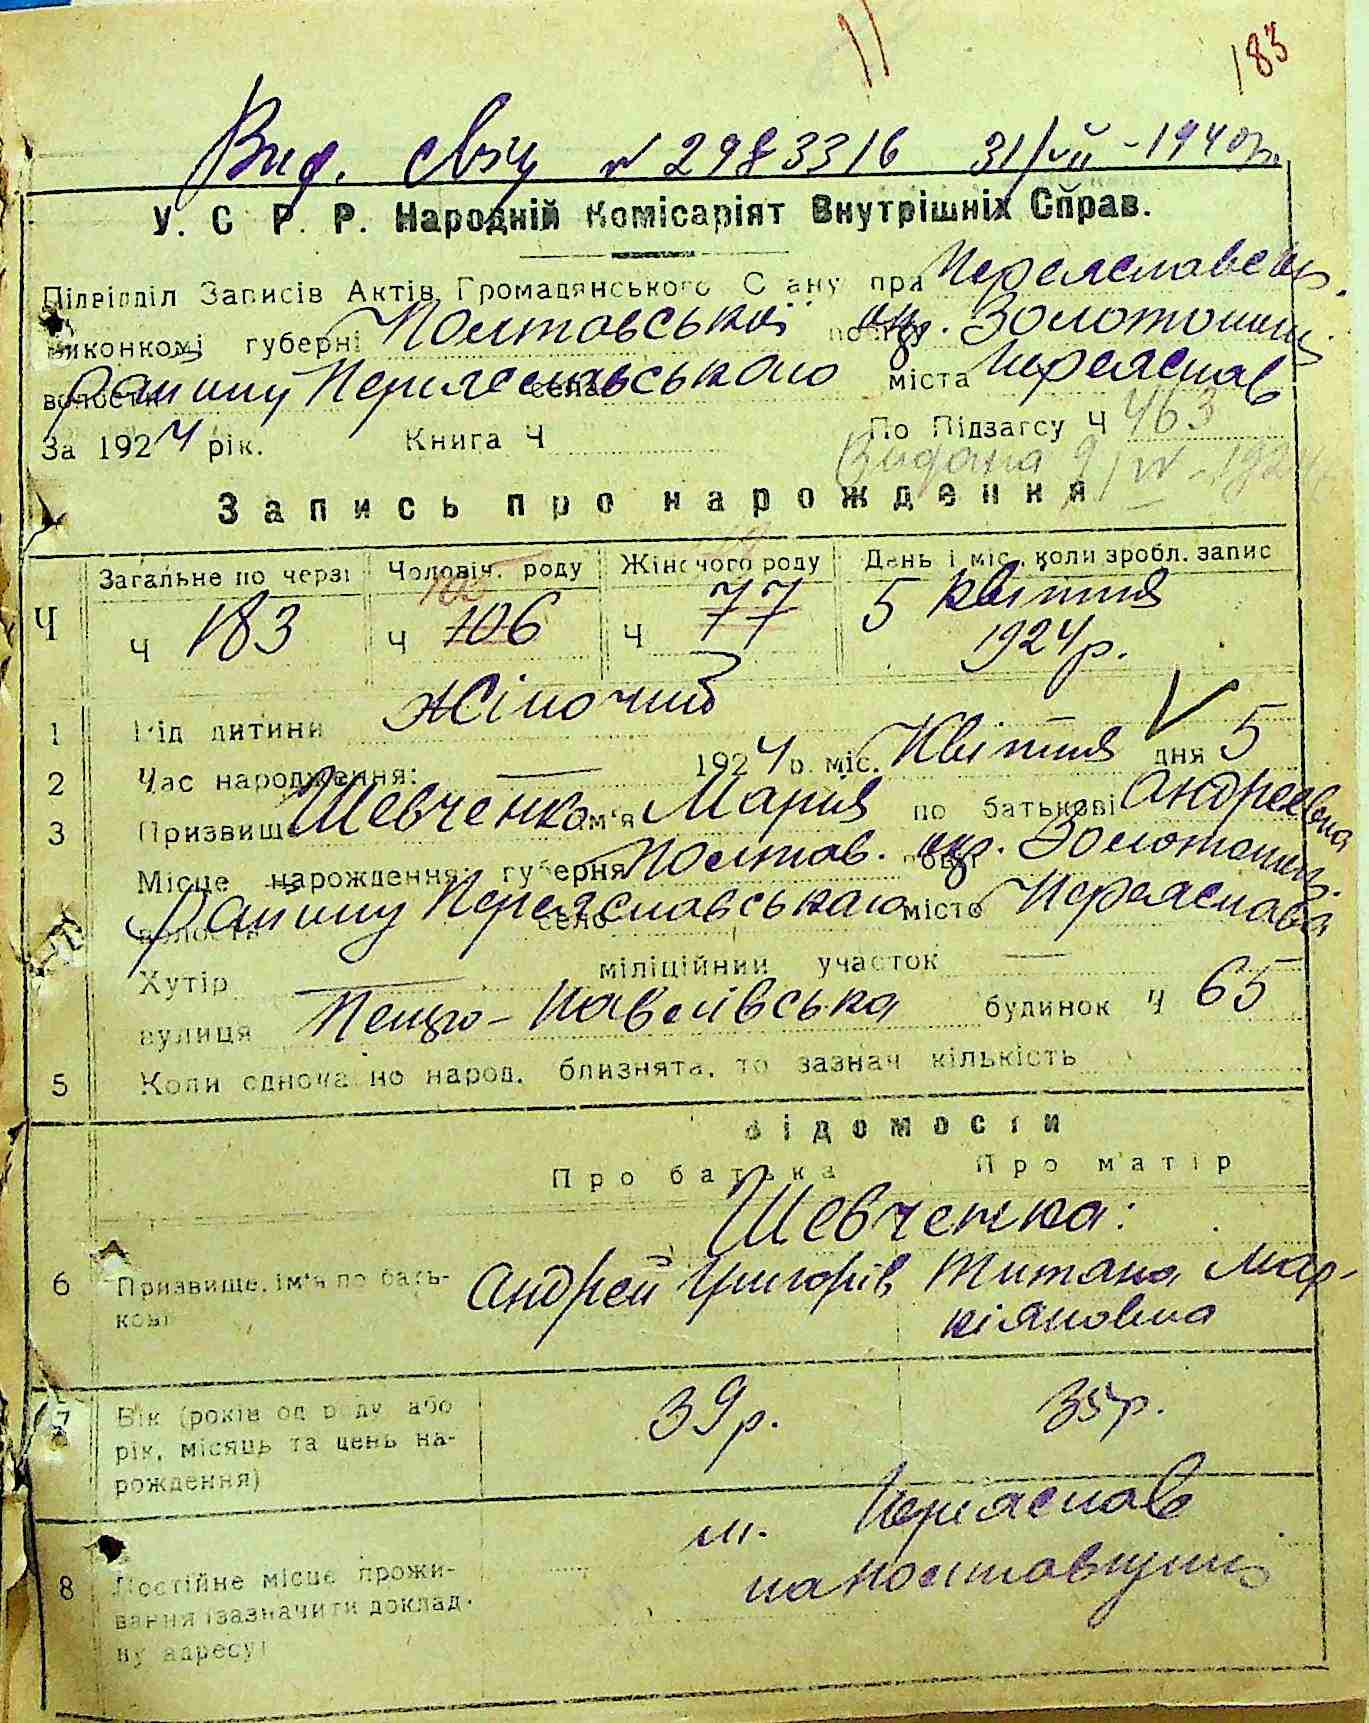 11 183
Вид. свід N 2983316 31/VII - 1940 р.
У. С Р. Р. Народній Комісаріят Внутрішніх Справ.
Підвідділ Записів Актів Громадянського Стану при Переяславськ.
Виконкомі губерні Полтавської окр. Золотонош
волости району Переяславського села міста Переяслав
За 1924 рік. Книга Ч По Підзагсу Ч 463
Видана 9/IV - 1924
Запись про народження
Ч Загальне по черзі Чоловіч. роду Жіночого роду День і міс. коли зробл. запис
Ч 183 Ч 106 Ч 77 5 Квітня
1924 р.
1 Рід дитини Жіночий
2 Час народження: — 1924 р. міс. Квітня дня 5
3 Призвище Шевченко ім'я Мария по батькові Андреевна
Місце нарождення: губерня Полтав. окр. Золотонош.
волость району Переяславського село місто Переяслав
Хутір — міліційний участок —
вулиця Петро-Павлівська будинок Ч 65
5 Коли одночасно народ. близнята, то зазнач кількість
Відомости
Про батька Про матір
Шевченка:
6 Призвище, ім'я по бать- Андрей Григорів Титана Мар-
кові кіяновна
7 Вік (років од роду або 39 р. 35 р.
рік, місяць та день на-
рождення)
м. Переяслав
8 Постійне місце прожи-
вання (зазначити доклад-
ну адресу)